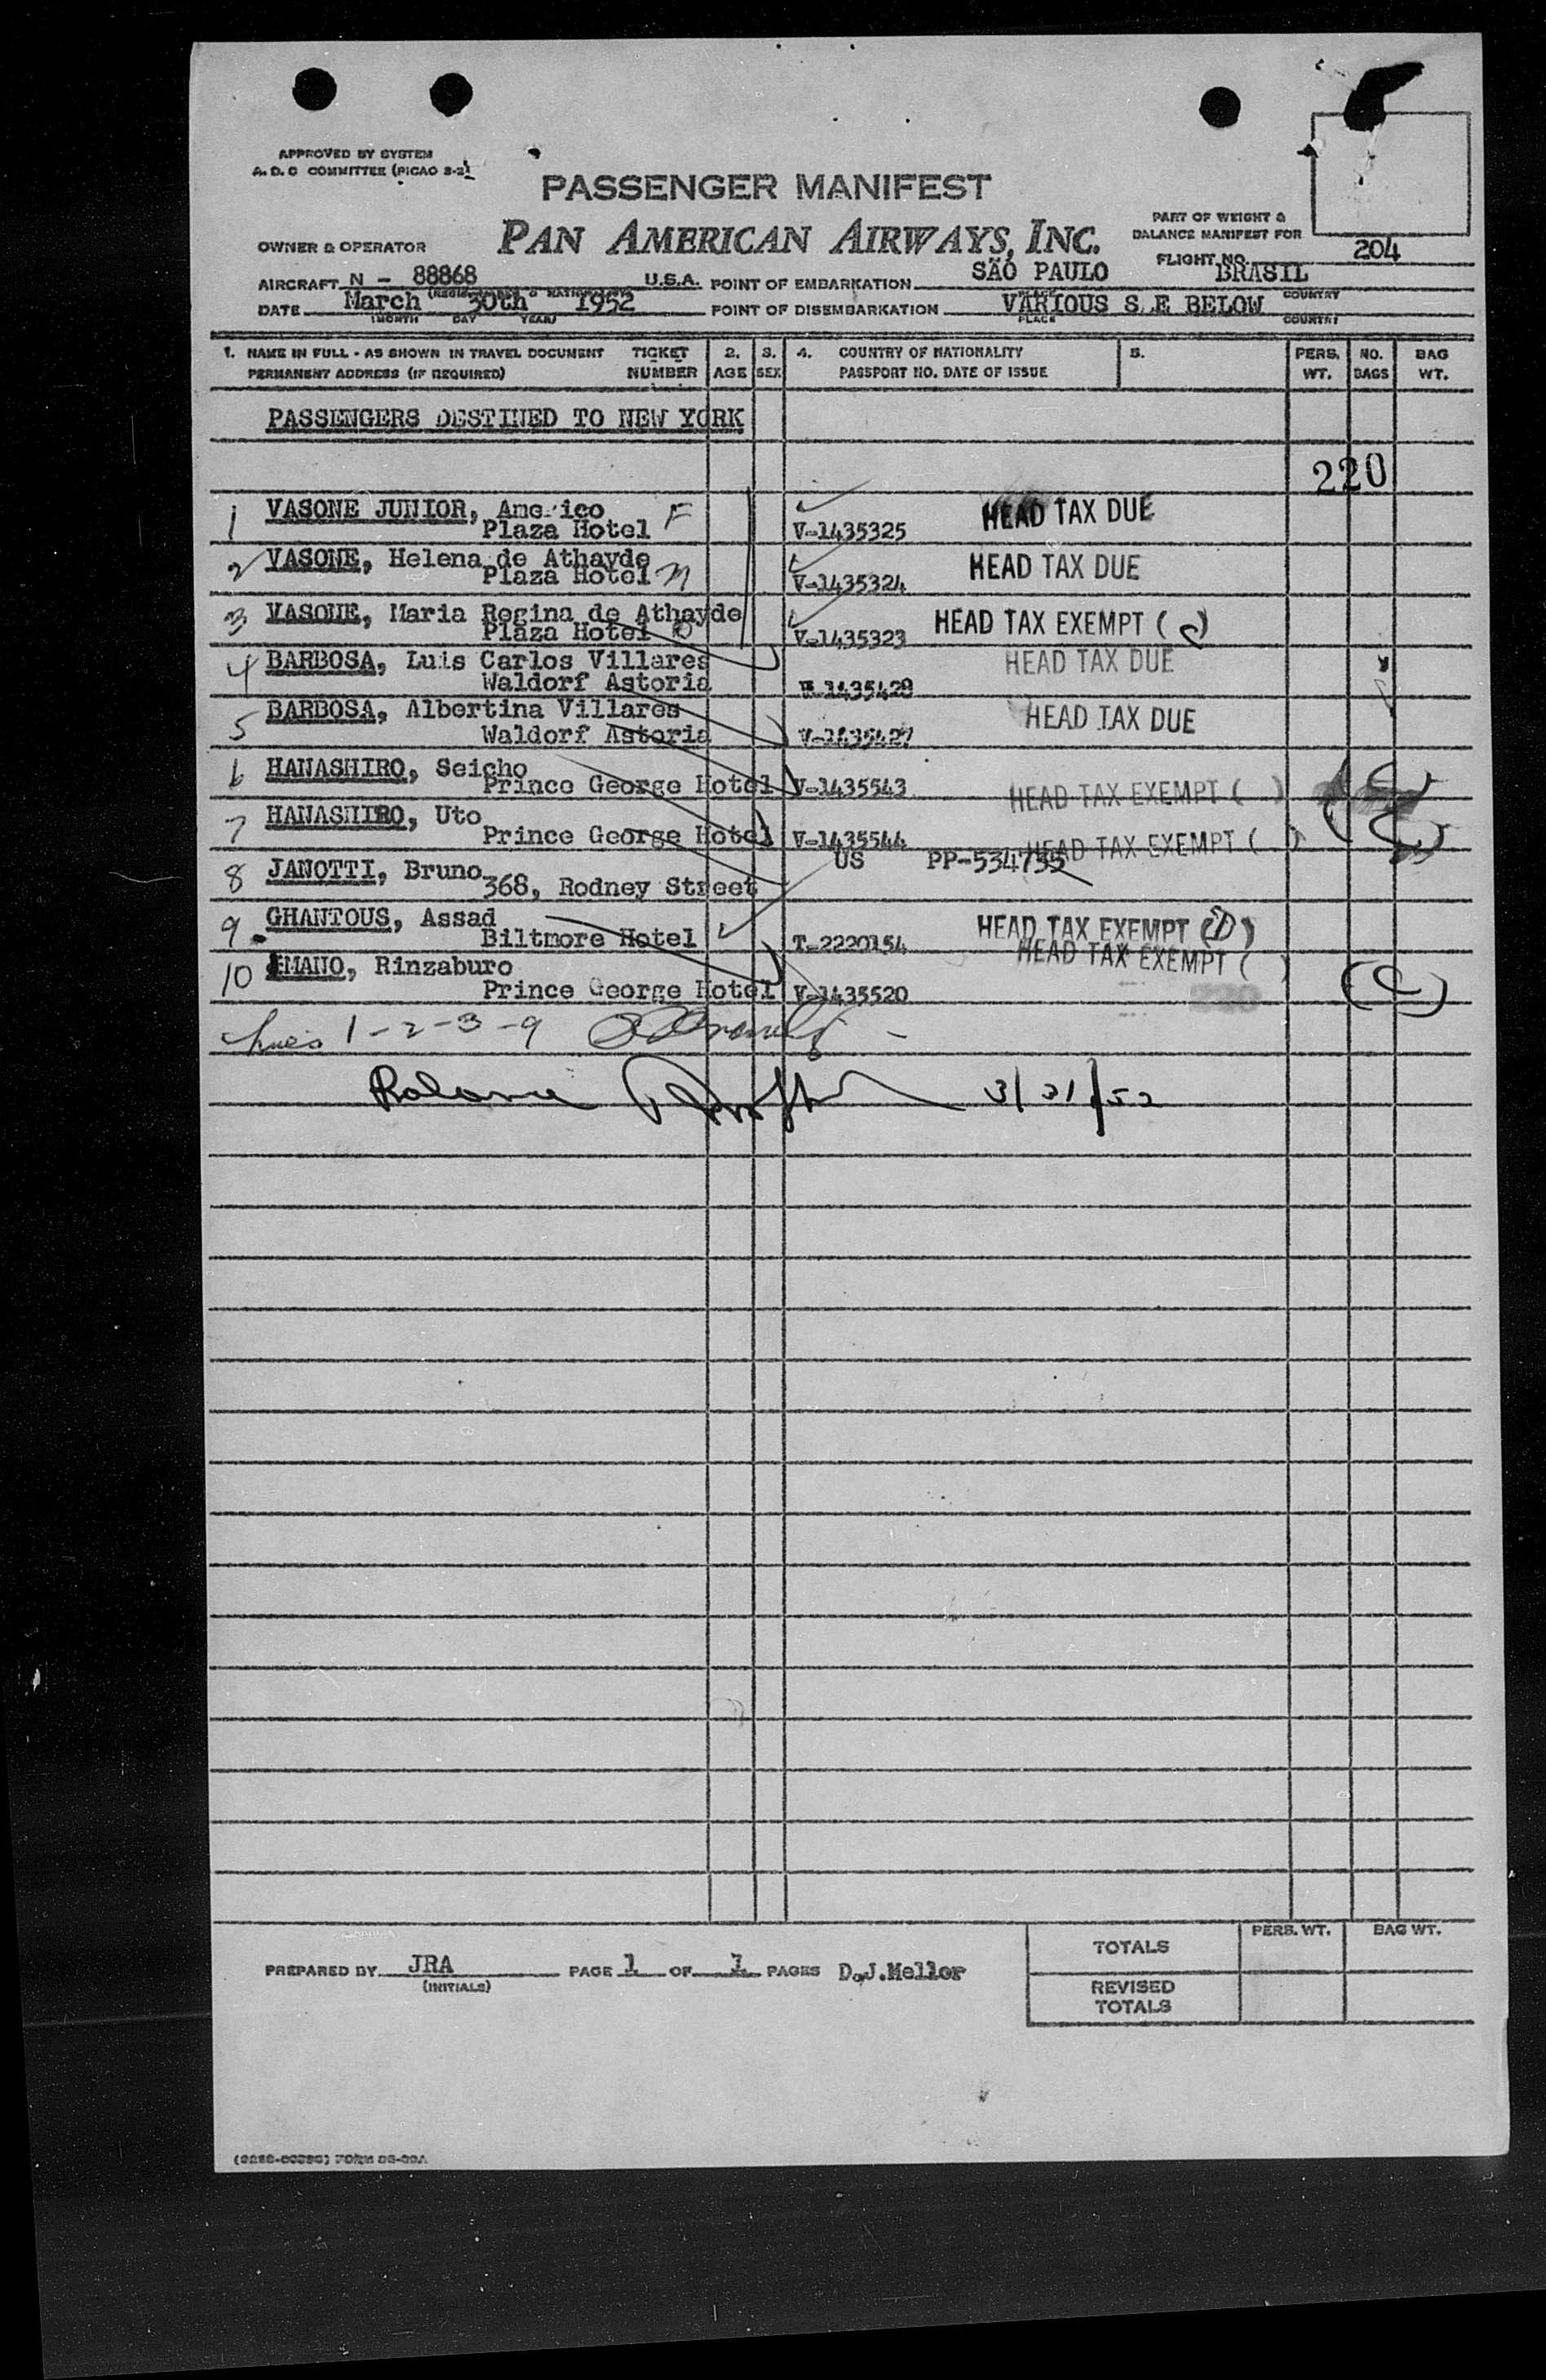 APPROVED BY SYSTEM
A. D. C COMMITTEE (PICAO S-2)
PASSENGER MANIFEST
PAN AMERICAN AIRWAYS, INC.
OWNER & OPERATOR
PART OF WEIGHT &
BALANCE MANIFEST FOR
FLIGHT NO. 204
AIRCRAFT N - 88868 U.S.A. POINT OF EMBARKATION SÃO PAULO BRASIL
DATE March 30th 1952 POINT OF DISEMBARKATION VARIOUS S.E BELOW COUNTRY
(MONTH DAY YEAR) PLACE COUNTRY
1. NAME IN FULL - AS SHOWN IN TRAVEL DOCUMENT TICKET 2. 3. 4. COUNTRY OF NATIONALITY 5. PERS. NO. BAG
PERMANENT ADDRESS (IF REQUIRED) NUMBER AGE SEX PASSPORT NO. DATE OF ISSUE WT. BAGS WT.
PASSENGERS DESTINED TO NEW YORK
220
1 VASONE JUNIOR, Americo HEAD TAX DUE
Plaza Hotel F V-1435325
2 VASONE, Helena de Athayde HEAD TAX DUE
Plaza Hotel M V-1435324
3 VASONE, Maria Regina de Athayde HEAD TAX EXEMPT (C)
Plaza Hotel V-1435323
4 BARBOSA, Luis Carlos Villares HEAD TAX DUE
Waldorf Astoria V-1435428
5 BARBOSA, Albertina Villares HEAD TAX DUE
Waldorf Astoria V-1435427
6 HANASHIRO, Seicho
Prince George Hotel V-1435543 HEAD TAX EXEMPT ( ) (C)
7 HANASHIRO, Uto
Prince George Hotel V-1435544 HEAD TAX EXEMPT ( ) (C)
US PP-534755
8 JANOTTI, Bruno
368, Rodney Street
9 GHANTOUS, Assad HEAD TAX EXEMPT (D)
Biltmore Hotel T-2220154
10 EMANO, Rinzaburo HEAD TAX EXEMPT ( )
Prince George Hotel V-1435520 220 (C)
1-2-3-9
3/31/52
PREPARED BY JRA PAGE 1 OF 1 PAGES D.J.Mellor
(INITIALS)
PERS. WT. BAG WT.
TOTALS
REVISED
TOTALS